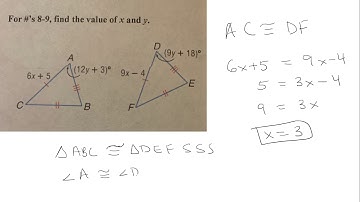 For #'s 8-9, find the value of x and y.
A
6x + 5
(12y + 3)°
C
B
D
(9y + 18)°
9x − 4
E
F
A C ≅ DF
6x+5 = 9x-4
5 = 3x-4
9 = 3x
x = 3
△ ABC ≅ △DEF SSS
∠A ≅ ∠D